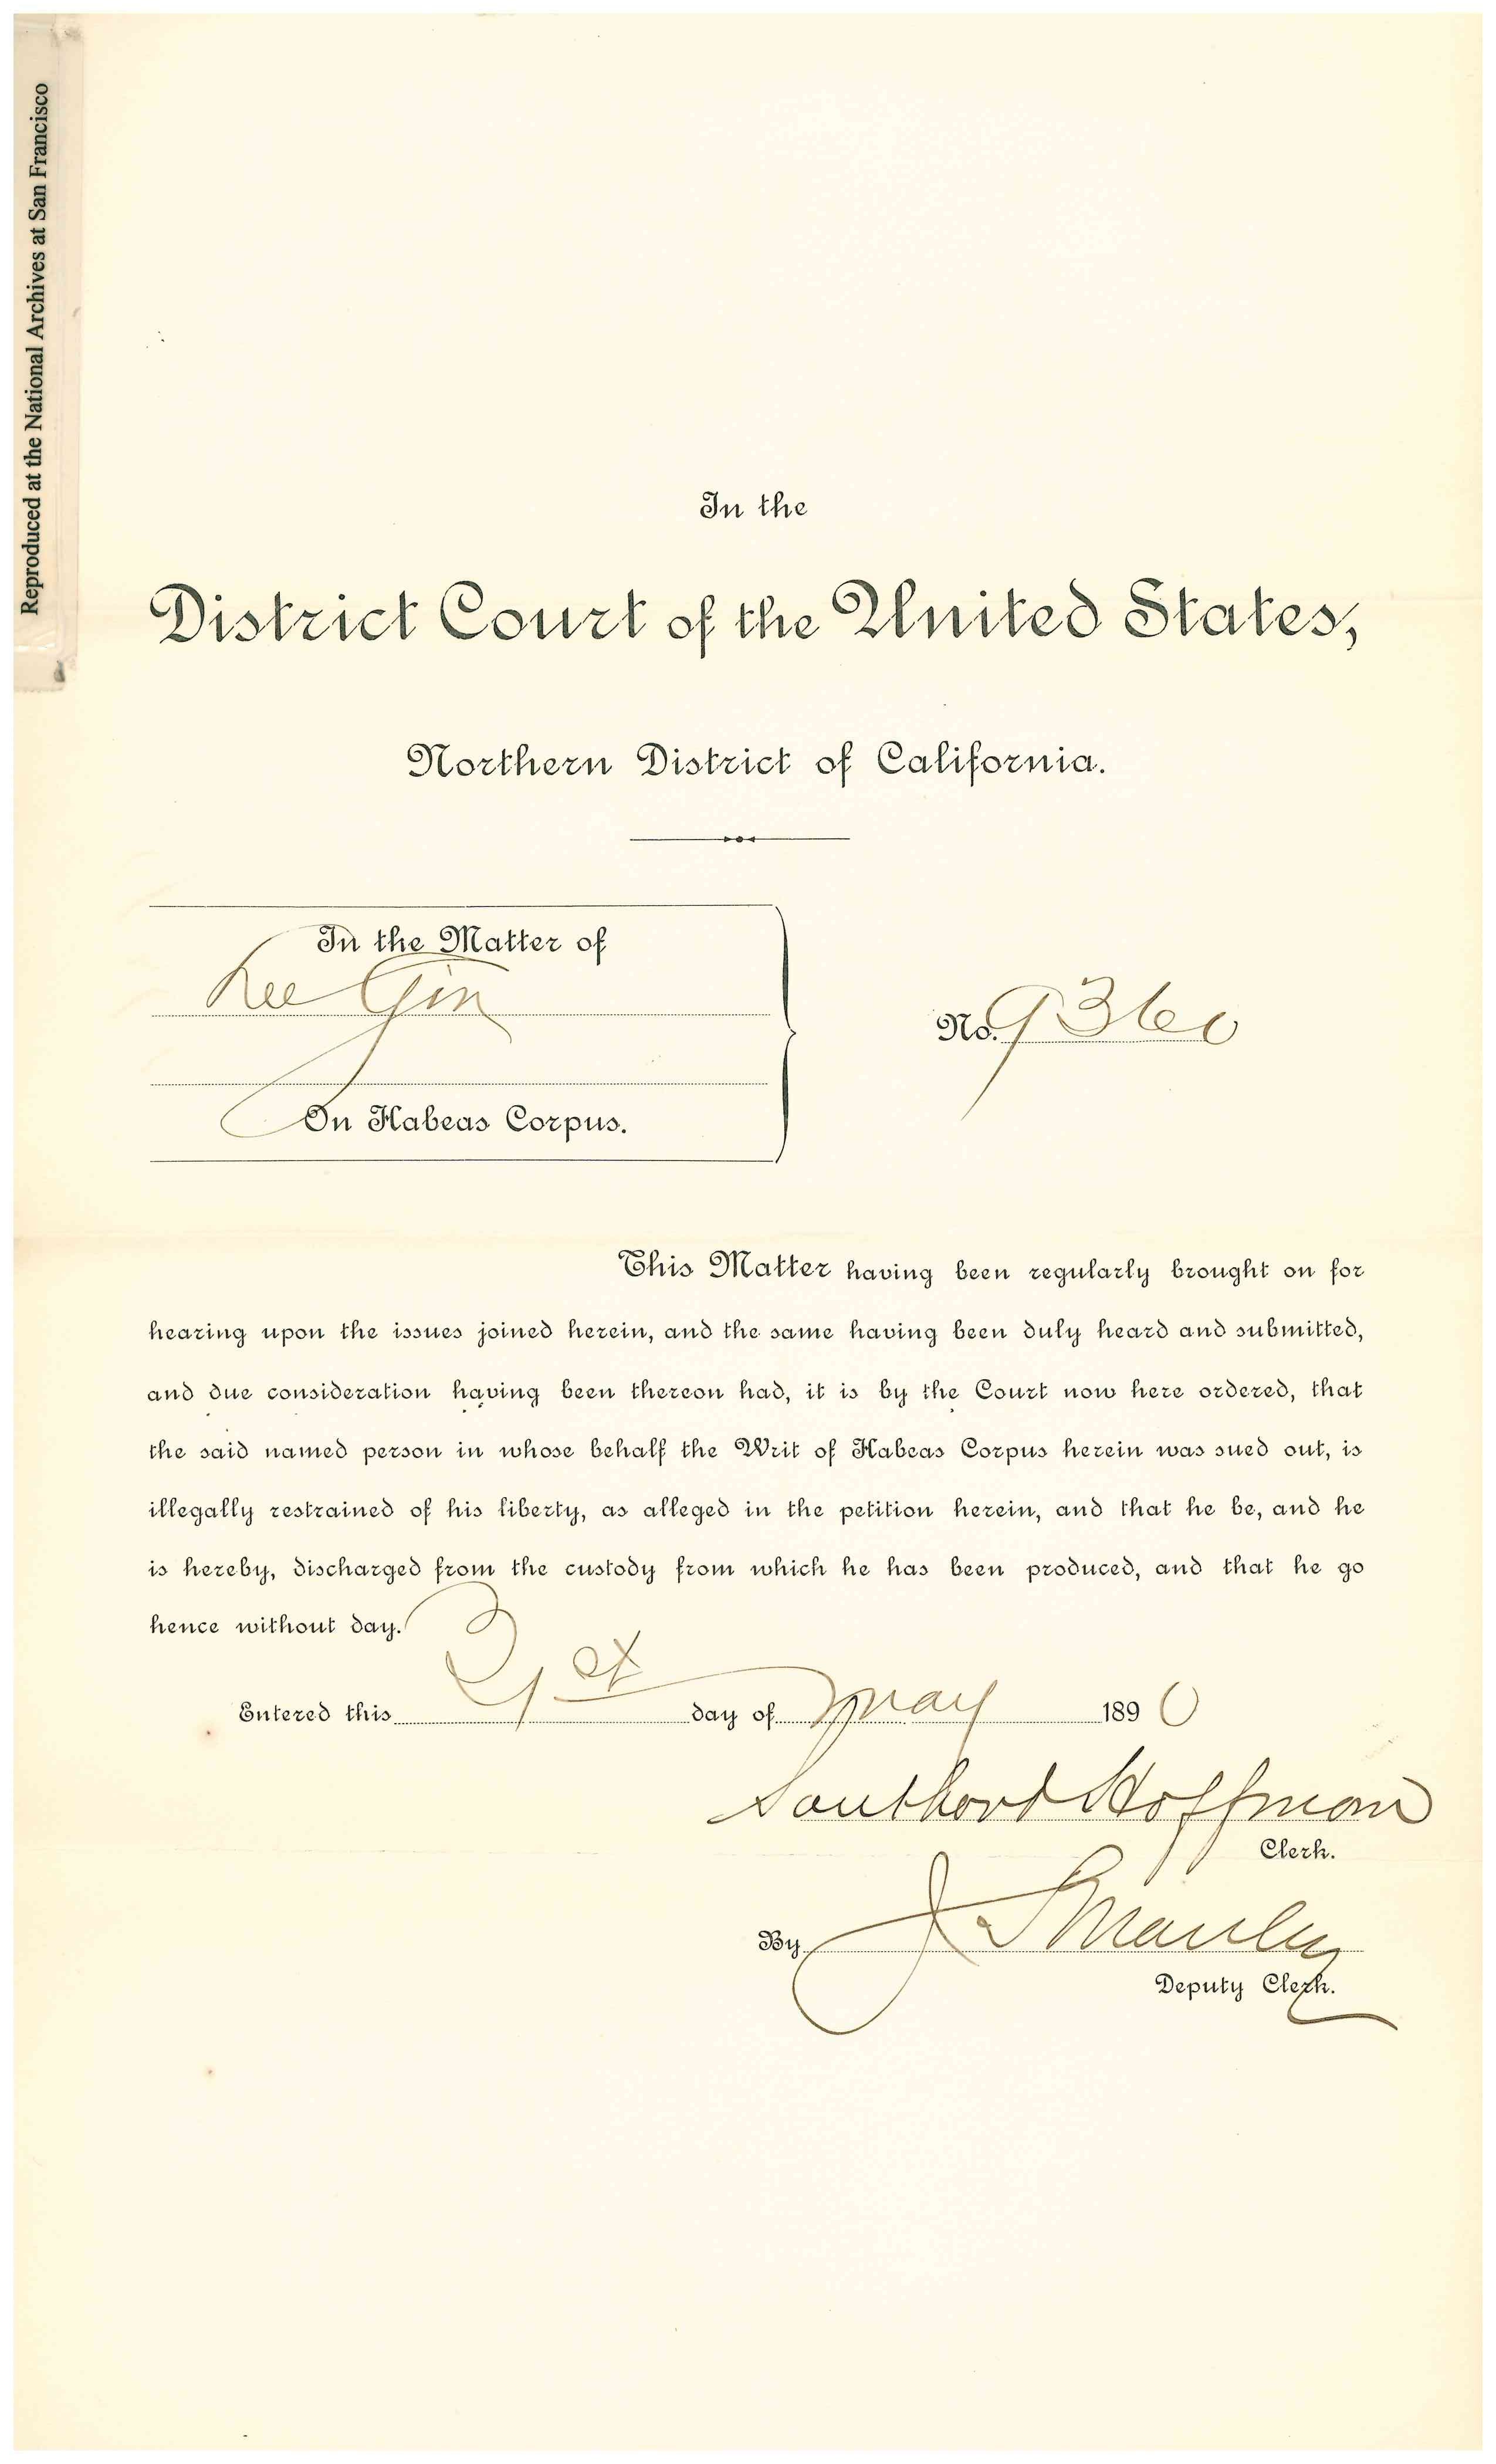 Reproduced at the National Archives at San Francisco
In the
District Court of the United States,
Northern District of California.
In the Matter of
Lee Gin
On Habeas Corpus.
No. 9360
This Matter having been regularly brought on for
hearing upon the issues joined herein, and the same having been duly heard and submitted,
and due consideration having been thereon had, it is by the Court now here ordered, that
the said named person in whose behalf the Writ of Habeas Corpus herein was sued out, is
illegally restrained of his liberty, as alleged in the petition herein, and that he be, and he
is hereby, discharged from the custody from which he has been produced, and that he go
hence without day.
Entered this 21st day of May 1890
Southard Hoffman
Clerk.
By J. S. Manley
Deputy Clerk.